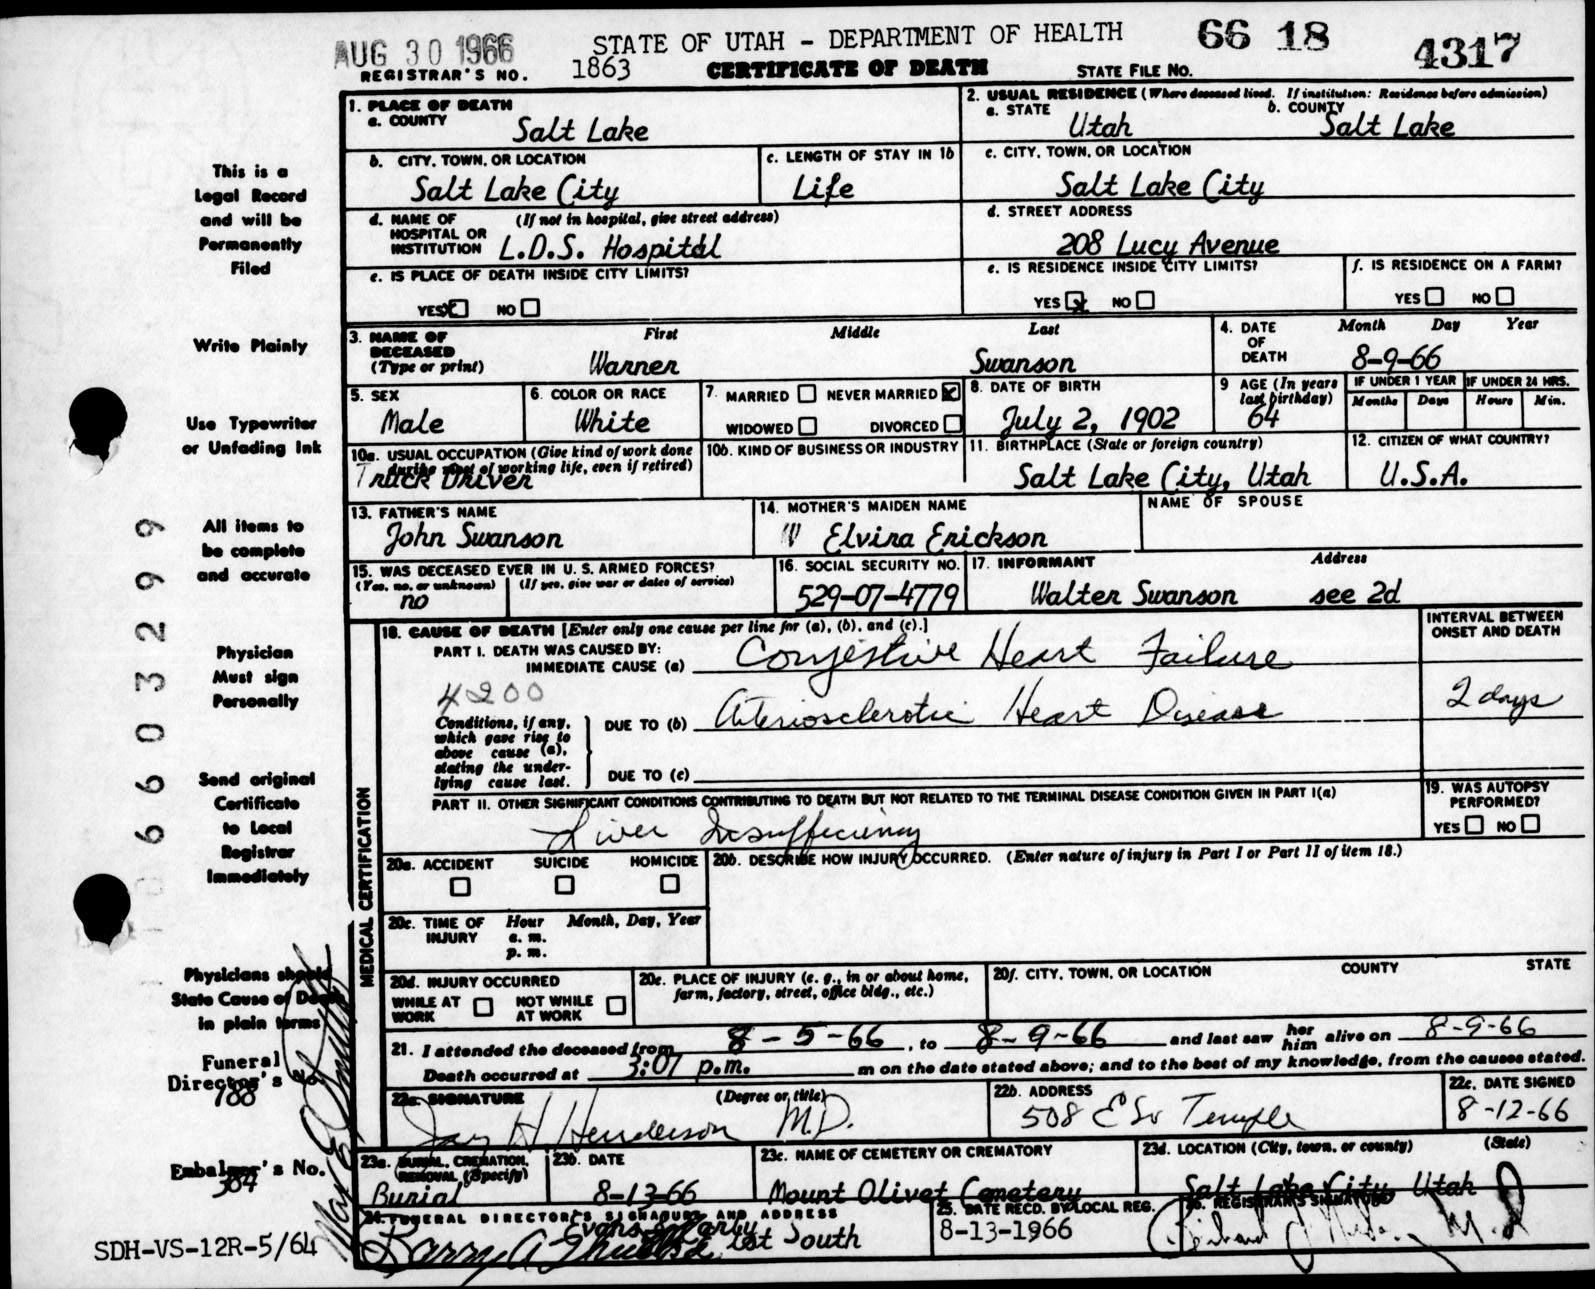 AUG 30 1966
STATE OF UTAH - DEPARTMENT OF HEALTH
66 18
4317
REGISTRAR'S NO. 1863
CERTIFICATE OF DEATH
STATE FILE NO.
1. PLACE OF DEATH
a. COUNTY
Salt Lake
2. USUAL RESIDENCE (Where deceased lived. If institution: Residence before admission)
a. STATE
Utah
b. COUNTY
Salt Lake
b. CITY, TOWN, OR LOCATION
Salt Lake City
c. LENGTH OF STAY IN 1b
Life
c. CITY, TOWN, OR LOCATION
Salt Lake City
d. NAME OF HOSPITAL OR INSTITUTION (If not in hospital, give street address)
L.D.S. Hospital
d. STREET ADDRESS
208 Lucy Avenue
e. IS PLACE OF DEATH INSIDE CITY LIMITS?
YES NO
e. IS RESIDENCE INSIDE CITY LIMITS?
YES NO
f. IS RESIDENCE ON A FARM?
YES NO
3. NAME OF DECEASED (Type or print)
First Middle Last
Warner Swanson
4. DATE OF DEATH
Month Day Year
8-9-66
5. SEX
Male
6. COLOR OR RACE
White
7. MARRIED NEVER MARRIED
WIDOWED DIVORCED
8. DATE OF BIRTH
July 2, 1902
9 AGE (In years last birthday)
64
IF UNDER 1 YEAR
Months Days
IF UNDER 24 HRS.
Hours Min.
10a. USUAL OCCUPATION (Give kind of work done during most of working life, even if retired)
Truck Driver
10b. KIND OF BUSINESS OR INDUSTRY
11. BIRTHPLACE (State or foreign country)
Salt Lake City, Utah
12. CITIZEN OF WHAT COUNTRY?
U.S.A.
13. FATHER'S NAME
John Swanson
14. MOTHER'S MAIDEN NAME
Elvira Erickson
NAME OF SPOUSE
15. WAS DECEASED EVER IN U. S. ARMED FORCES?
(Yes, no, or unknown) (If yes, give war or dates of service)
no
16. SOCIAL SECURITY NO.
529-07-4779
17. INFORMANT Address
Walter Swanson see 2d
MEDICAL CERTIFICATION
18. CAUSE OF DEATH [Enter only one cause per line for (a), (b), and (c).]
INTERVAL BETWEEN ONSET AND DEATH
PART I. DEATH WAS CAUSED BY:
IMMEDIATE CAUSE (a) Congestive Heart Failure
4200
Conditions, if any, which gave rise to above cause (a), stating the underlying cause last.
DUE TO (b) Arteriosclerotic Heart Disease
2 days
DUE TO (c)
PART II. OTHER SIGNIFICANT CONDITIONS CONTRIBUTING TO DEATH BUT NOT RELATED TO THE TERMINAL DISEASE CONDITION GIVEN IN PART I(a)
Liver Insufficiency
19. WAS AUTOPSY PERFORMED?
YES NO
20a. ACCIDENT SUICIDE HOMICIDE
20b. DESCRIBE HOW INJURY OCCURRED. (Enter nature of injury in Part I or Part II of item 18.)
20c. TIME OF INJURY Hour Month, Day, Year
a. m.
p. m.
20d. INJURY OCCURRED
WHILE AT WORK NOT WHILE AT WORK
20e. PLACE OF INJURY (e. g., in or about home, farm, factory, street, office bldg., etc.)
20f. CITY, TOWN, OR LOCATION COUNTY STATE
21. I attended the deceased from 8-5-66, to 8-9-66 and last saw her him alive on 8-9-66
Death occurred at 3:07 p.m. m on the date stated above; and to the best of my knowledge, from the causes stated.
22a. SIGNATURE (Degree or title)
Jay H Henderson M.D.
22b. ADDRESS
508 E So Temple
22c. DATE SIGNED
8-12-66
23a. BURIAL, CREMATION, REMOVAL (Specify)
Burial
23b. DATE
8-13-66
23c. NAME OF CEMETERY OR CREMATORY
Mount Olivet Cemetery
23d. LOCATION (City, town, or county) (State)
Salt Lake City, Utah
24. FUNERAL DIRECTOR'S SIGNATURE AND ADDRESS
Evans & Early
1st South
25. DATE RECD. BY LOCAL REG.
8-13-1966
26. REGISTRAR'S SIGNATURE
This is a
Legal Record
and will be
Permanently
Filed
Write Plainly
Use Typewriter
or Unfading Ink
All items to
be complete
and accurate
Physician
Must sign
Personally
Send original
Certificate
to Local
Registrar
Immediately
Physicians should
State Cause of Death
in plain terms
Funeral
Director's
788
Embalmer's No.
384
6603299
SDH-VS-12R-5/64